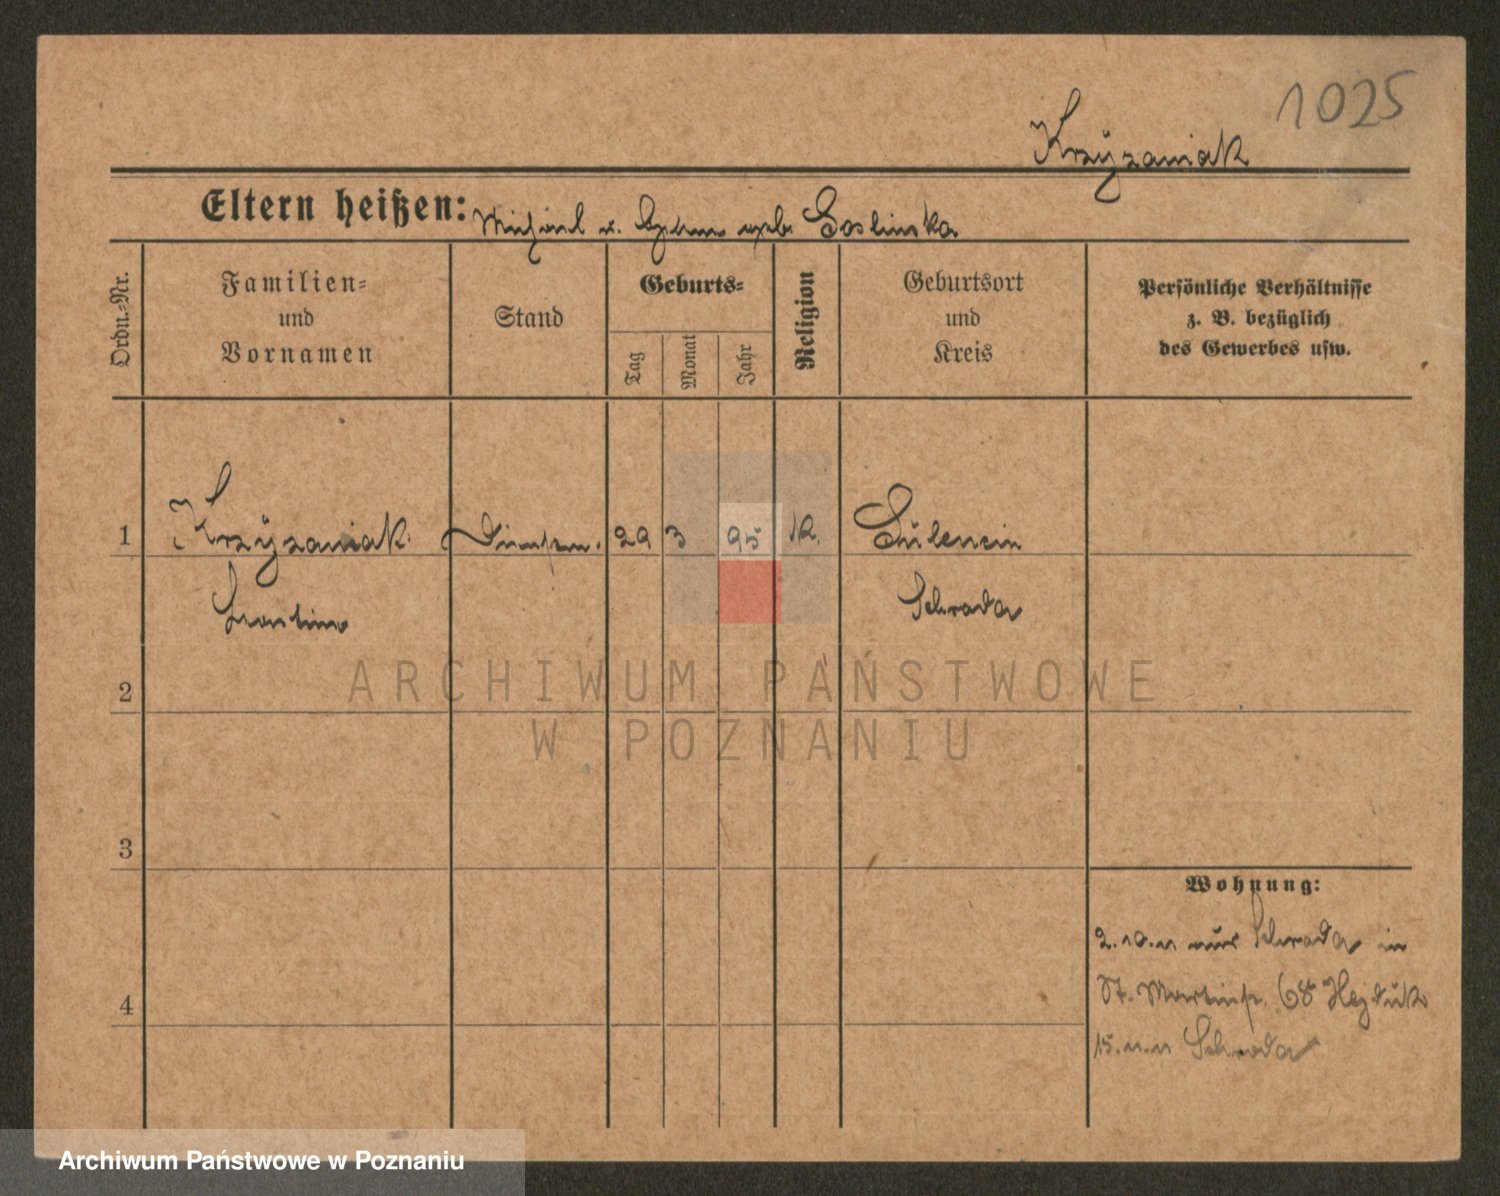 1025
Krzÿzaniak
Eltern heißen: Michael u. geb. Goslinska
Ordn.-Nr.
Familien-
und
Vornamen
Stand
Geburts-
Tag
Monat
Jahr
Religion
Geburtsort
und
Kreis
Persönliche Verhältnisse
z. B. bezüglich
des Gewerbes usw.
1 Krzÿzaniak 29 3 95 K.
Schroda
2
ARCHIWUM PAŃSTWOWE
W POZNANIU
3
Wohnung:
2.10.11 aus Schroda in
St. Martinstr. 68 Hejduk
4
15.11.11 Schroda
Archiwum Państwowe w Poznaniu